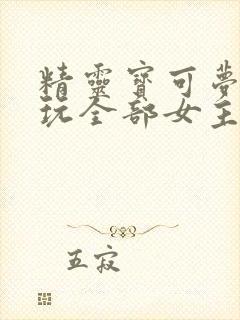 精靈寶可夢
玩全部女主
五寂